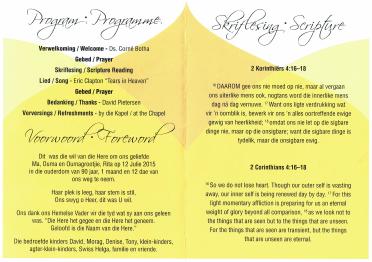 Program · Programme
Verwelkoming / Welcome - Ds. Corné Botha
Gebed / Prayer
Skriflesing / Scripture Reading
Lied / Song - Eric Clapton "Tears in Heaven"
Gebed / Prayer
Bedanking / Thanks - David Pietersen
Verversings / Refreshments - by die Kapel / at the Chapel
Voorwoord · Foreword
Dit was die wil van die Here om ons geliefde
Ma, Ouma en Oumagrootjie, Rita op 12 Julie 2015
in die ouderdom van 90 jaar, 1 maand en 12 dae van
ons weg te neem.
Haar plek is leeg, haar stem is stil,
Ons swyg o Heer, dit was U wil.
Ons dank ons Hemelse Vader vir die tyd wat sy aan ons geleen
was. "Die Here het gegee en die Here het geneem.
Geloofd is die Naam van die Here."
Die bedroefde kinders David, Morag, Denise, Tony, klein-kinders,
agter-klein-kinders, Swiss Helga, familie en vriende.
Skriflesing · Scripture
2 Korinthiërs 4:16–18
16 DAAROM gee ons nie moed op nie, maar al vergaan
ons uiterlike mens ook, nogtans word die innerlike mens
dag ná dag vernuwe. 17 Want ons ligte verdrukking wat
vir 'n oomblik is, bewerk vir ons 'n alles oortreffende ewige
gewig van heerlikheid; 18 omdat ons nie let op die sigbare
dinge nie, maar op die onsigbare; want die sigbare dinge is
tydelik, maar die onsigbare ewig.
2 Corinthians 4:16–18
16 So we do not lose heart. Though our outer self is wasting
away, our inner self is being renewed day by day. 17 For this
light momentary affliction is preparing for us an eternal
weight of glory beyond all comparison, 18 as we look not to
the things that are seen but to the things that are unseen.
For the things that are seen are transient, but the things
that are unseen are eternal.